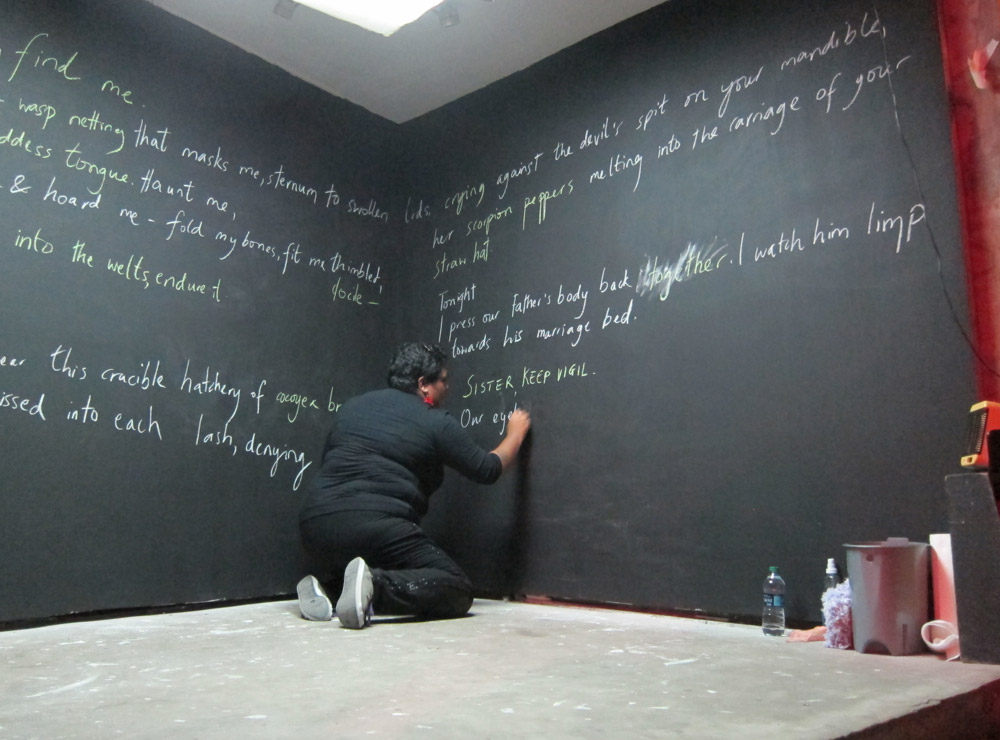 find me.
wasp netting that masks me, sternum to swollen
tongue. Haunt me,
& hoard me - fold my bones, fit me thimbled,
into the welts, endure it
this crucible hatchery of
into each lash, denying
lids, crying against the devil's spit on your mandible,
her scorpion peppers melting into the carriage of your
straw hat.
Tonight
I press our father's body back together. I watch him limp
towards his marriage bed.
SISTER KEEP VIGIL.
Our